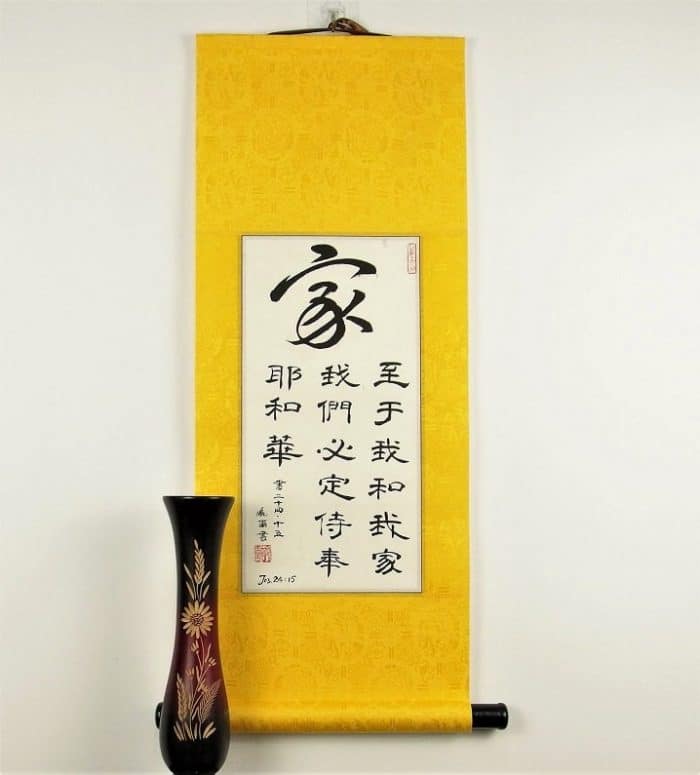 家
至于我和我家
我們必定侍奉
耶和華
書二十四·十五
Jos. 24:15